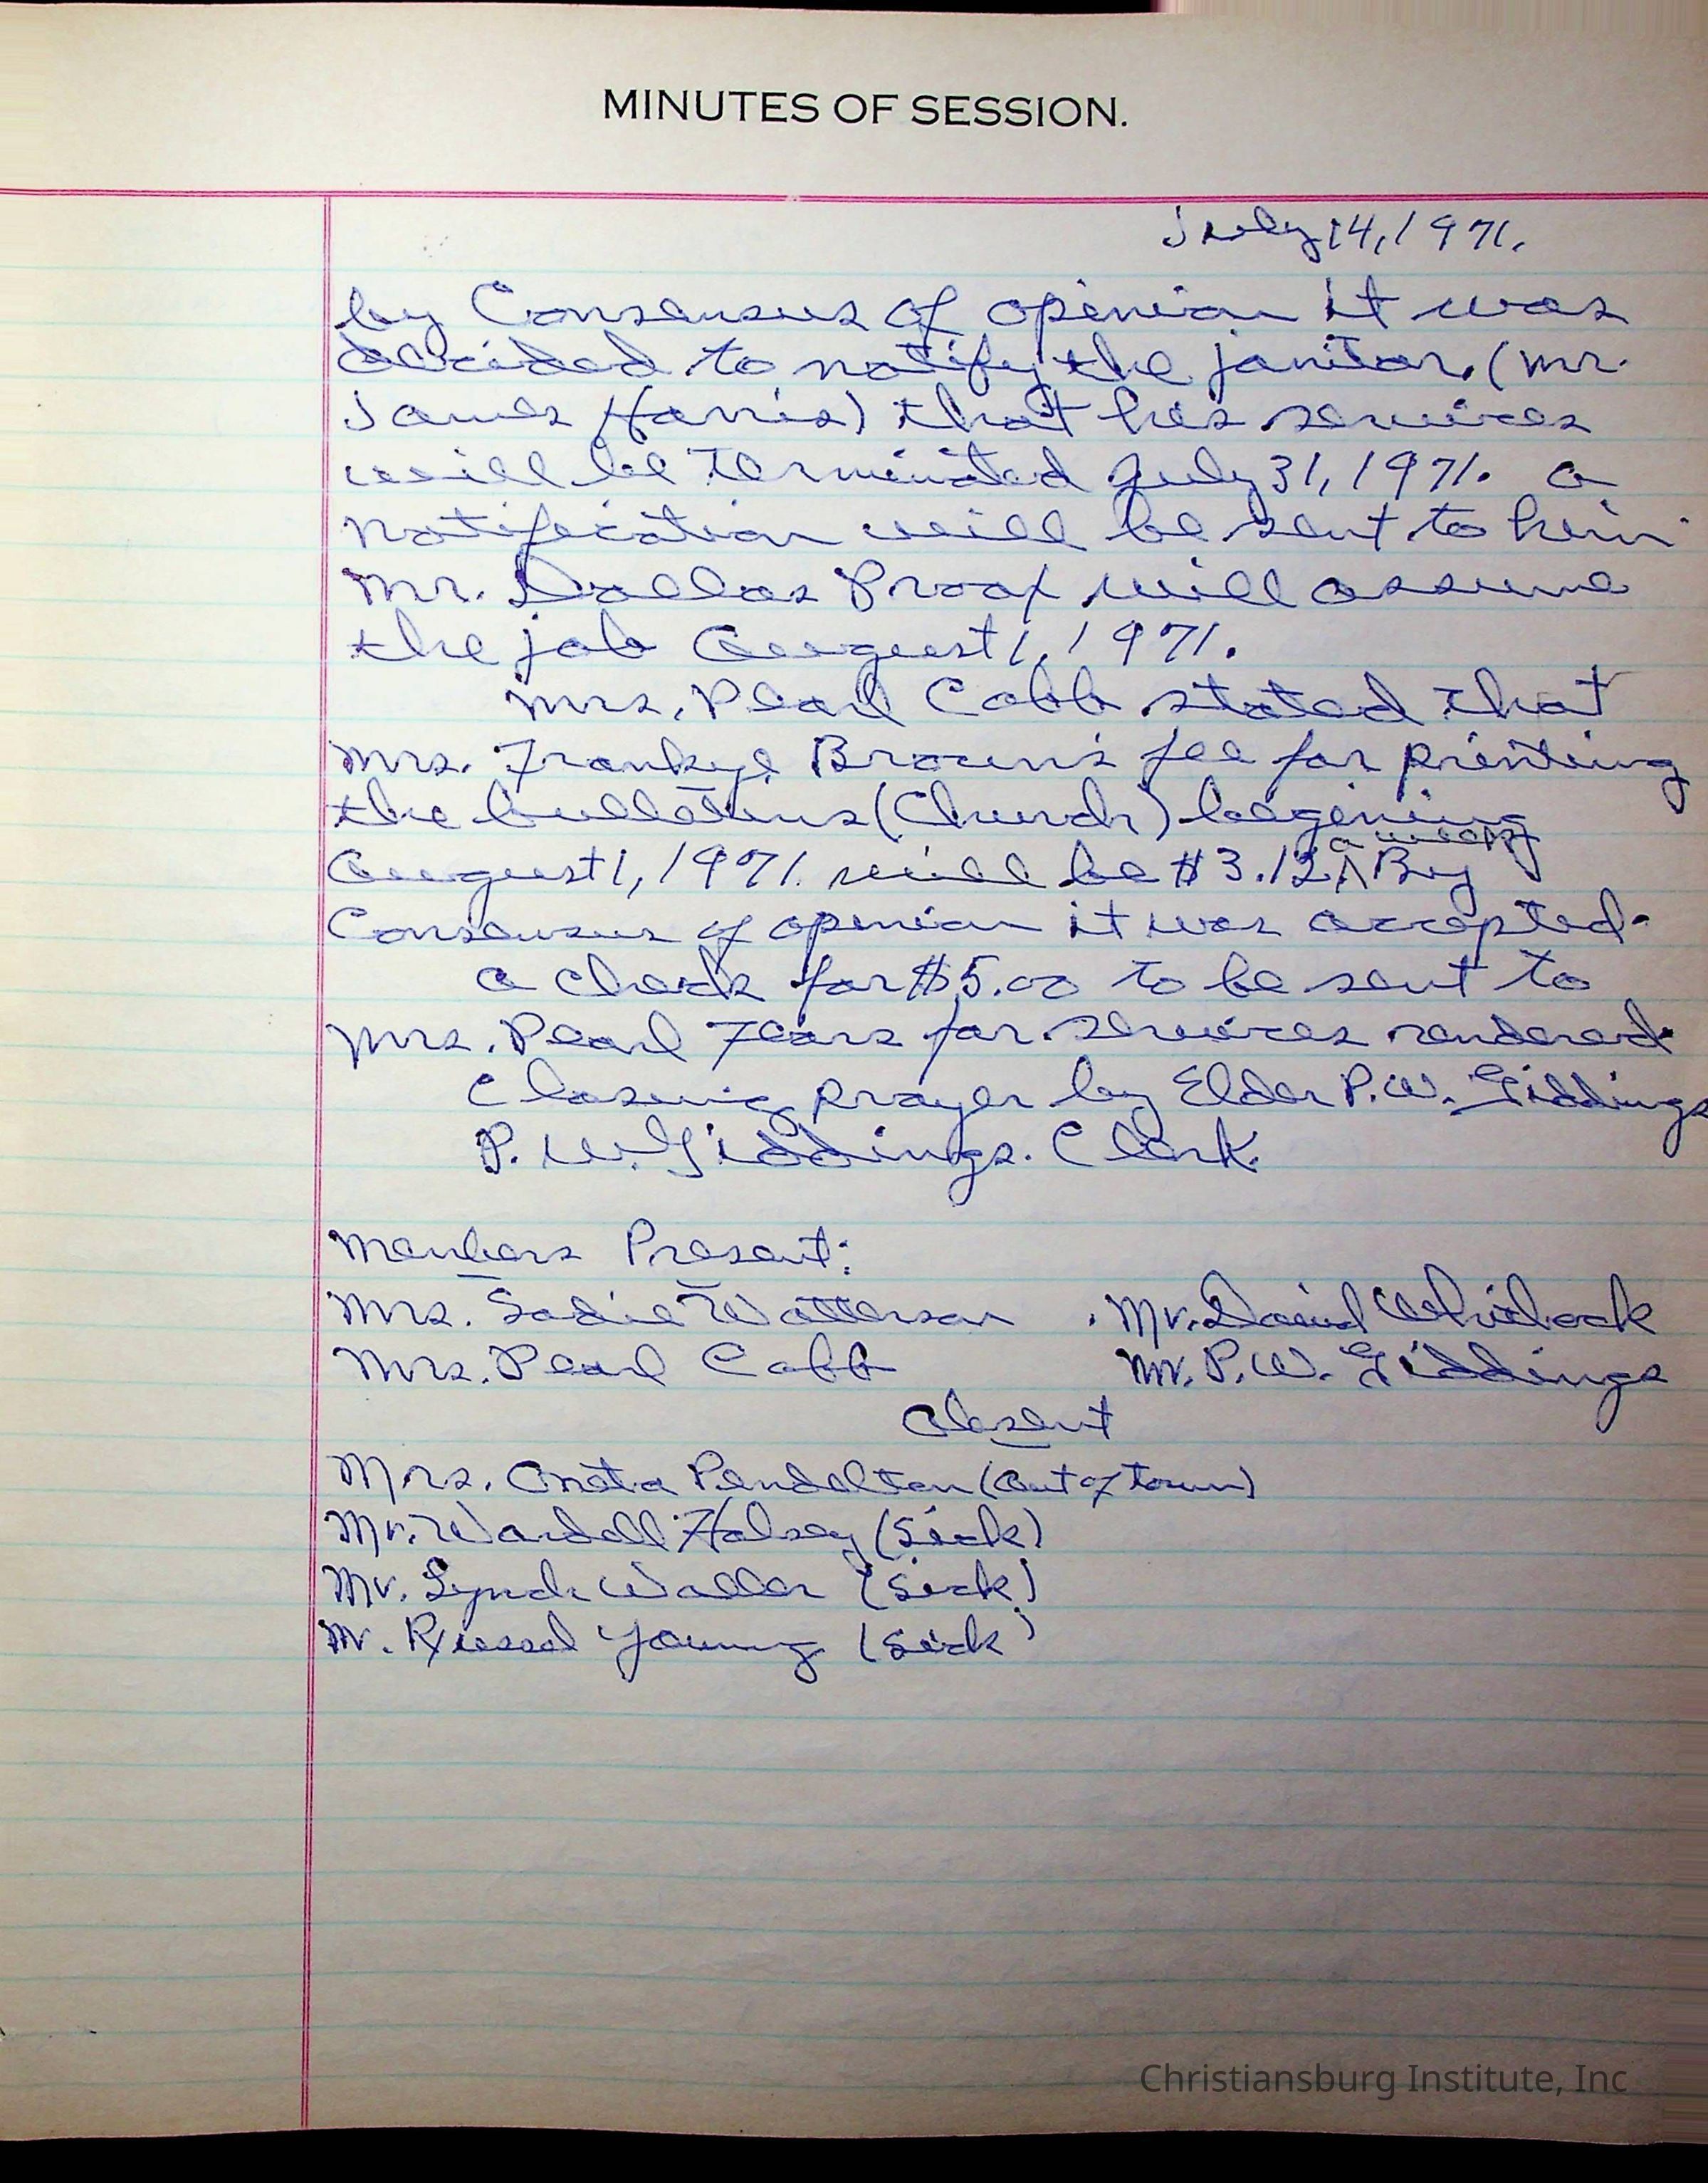 MINUTES OF SESSION.
July 14, 1971.
by Consensus of openion it was
decided to notify the janitor, (Mr.
James Harris) that his services
will be terminated July 31, 1971. a
notification will be sent to him
Mr. Dallas Proax will assume
the job August 1, 1971.
Mrs. Pearl Cobb stated that
Mrs. Frankye Brown's fee for printing
the bulletins (Church) begening
a week
August 1, 1971. will be $3.12 ^ By
Consensus of openion it was accepted.
a check for $5.00 to be sent to
Mrs. Pearl Fears for services rendered.
Closing prayer by Elder P.W. Giddings
P. W. Giddings. Clerk.
Members Present:
Mrs. Sadie Watterson . Mr. David Whitlock
Mrs. Pearl Cobb Mr. P.W. Giddings
Absent
Mrs. Oneta Pendelton (Out of town)
Mr. Wardell Halsey (Sick)
Mr. Lynch Waller (Sick)
Mr. Russel Young (Sick)
Christiansburg Institute, Inc